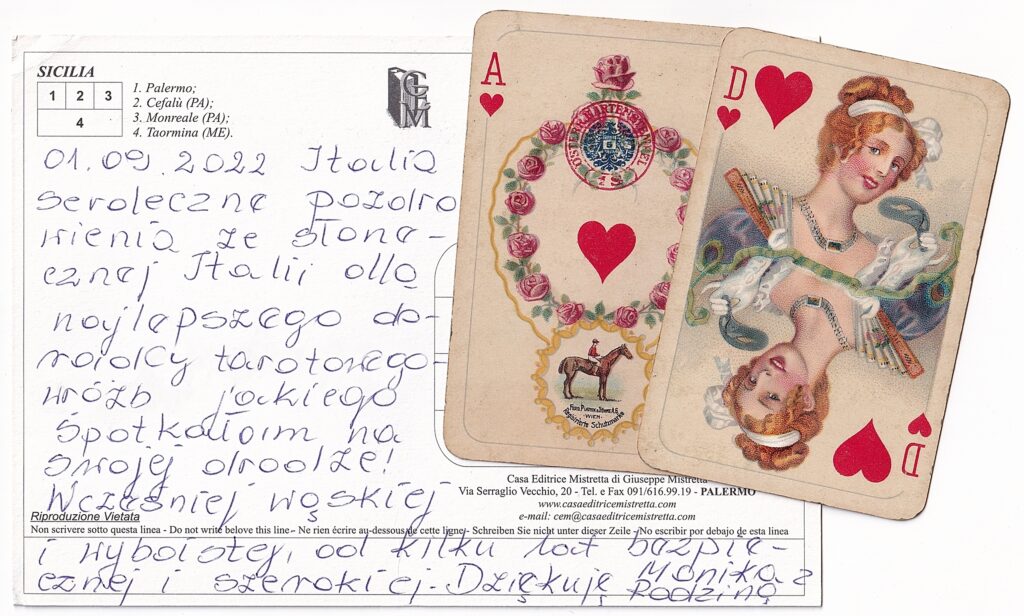 SICILIA
1 2 3
4
1. Palermo;
2. Cefalù (PA);
3. Monreale (PA);
4. Taormina (ME).
GEM
01.09.2022 Italia
serdeczne pozdro
wienia ze słone-
cznej Italii dla
najlepszego do-
radcy tarotowego
wróżb jakiego
spotkałam na
swojej drodze!
Wcześniej wąskiej
i wyboistej, od kilku lat bezpie-
cznej i szerokiej. Dziękuję Monika z
Rodziną
Riproduzione Vietata
Casa Editrice Mistretta di Giuseppe Mistretta
Via Serraglio Vecchio, 20 - Tel. e Fax 091/616.99.19 - PALERMO
www.casaeditricemistretta.com
e-mail: cem@casaeditricemistretta.com
Non scrivere sotto questa linea - Do not write belove this line - Ne rien écrire au-dessous de cette ligne - Schreiben Sie nicht unter dieser Zeile - No escribir por debajo de esta linea
A
FERD. PIATNIK & SÖHNE A.G.
WIEN
Registrierte Schutzmarke
D
D